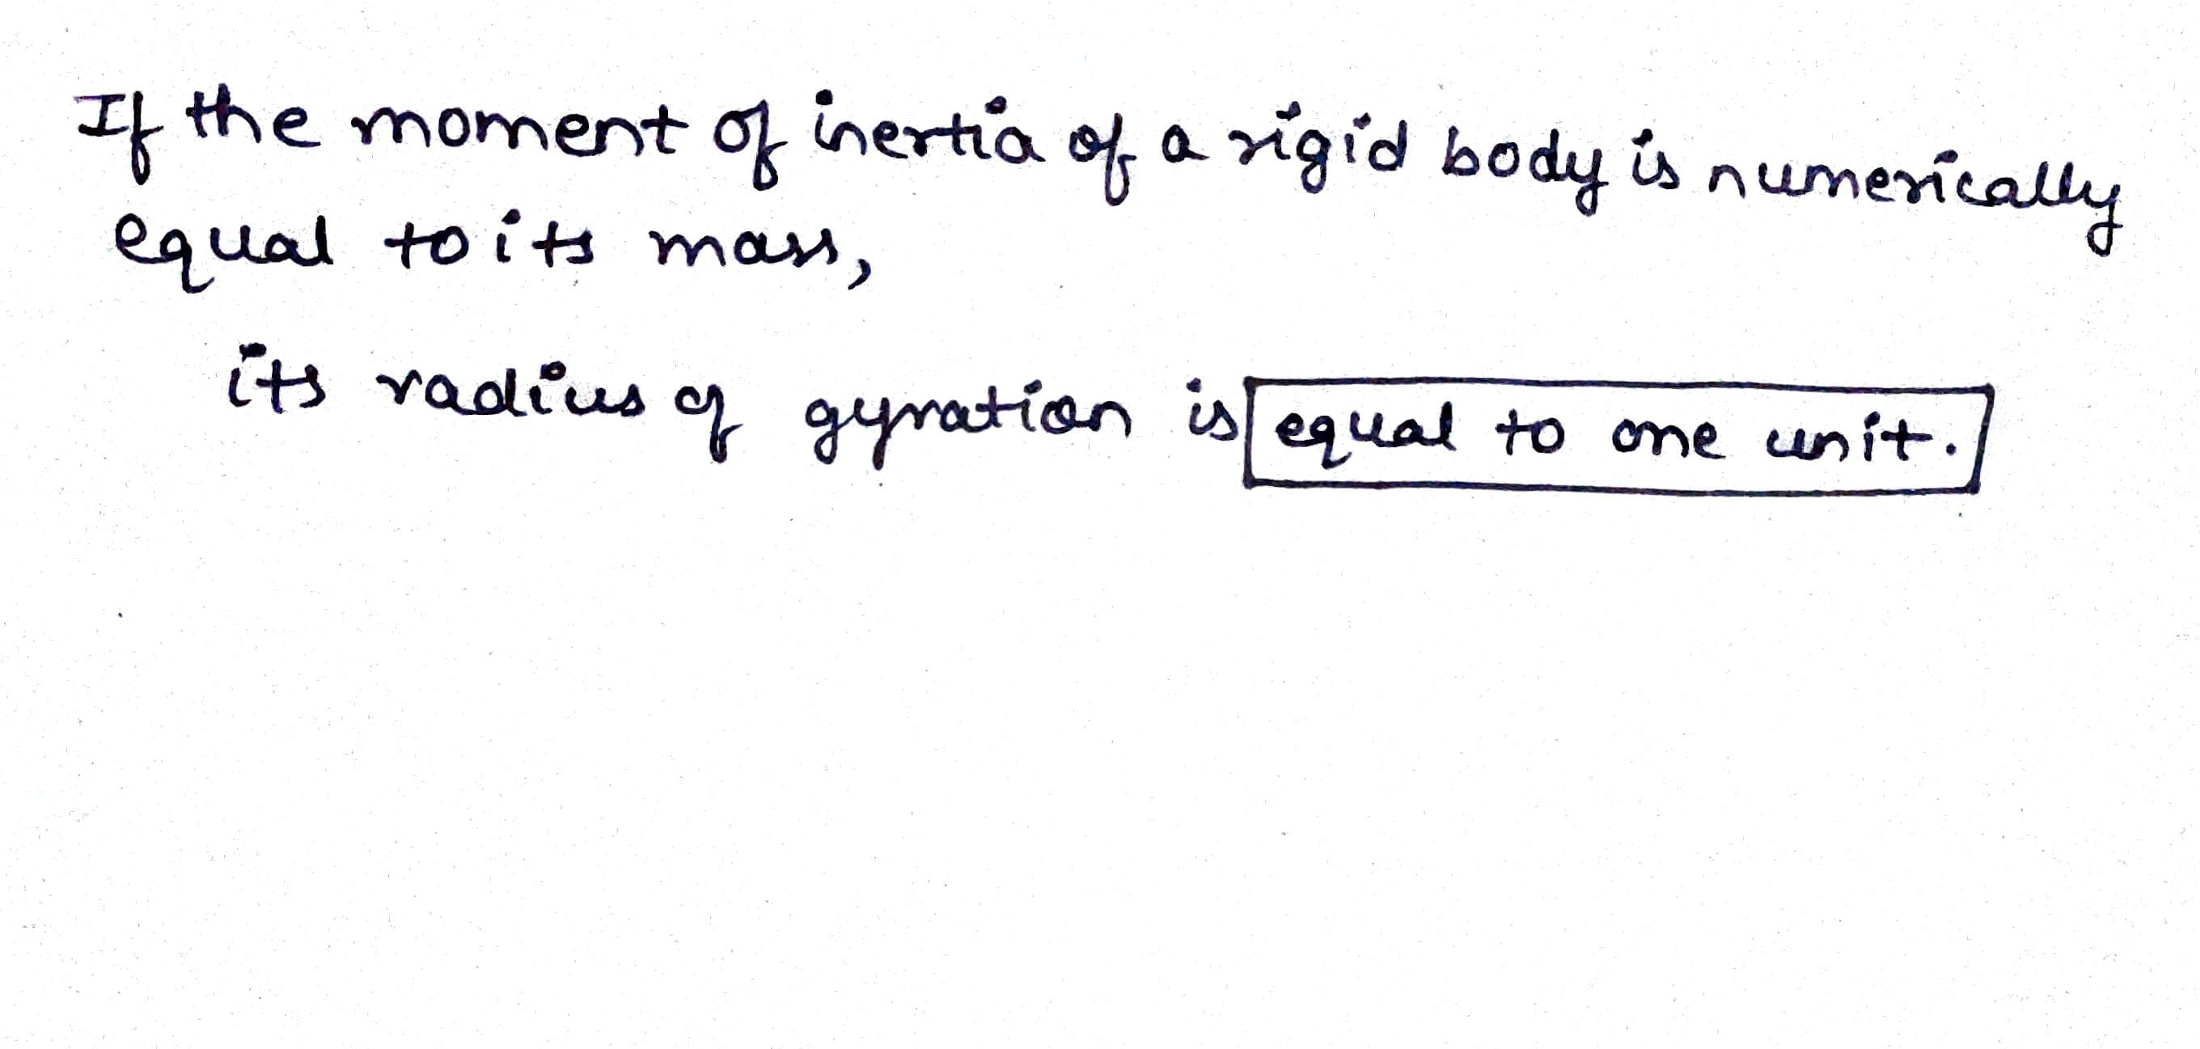 If the moment of inertia of a rigid body is numerically
equal to its mass,
its radius of gyration is equal to one unit.